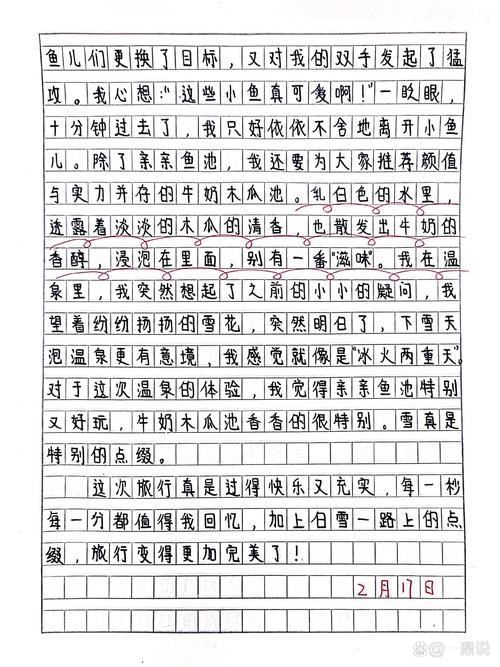 鱼儿们更换了目标，又对我的双手发起了猛
攻。我心想：“这些小鱼真可爱啊！”一眨眼，
十分钟过去了，我只好依依不舍地离开小鱼
儿。除了亲亲鱼池，我还要为大家推荐颜值
与实力并存的牛奶木瓜池。乳白色的水里，
透露着淡淡的木瓜的清香，也散发出牛奶的
香醇，浸泡在里面，别有一番“滋味”。我在温
泉里，我突然想起了之前的小小的疑问，我
望着纷纷扬扬的雪花，突然明白了，下雪天
泡温泉更有意境，我感觉就像是“冰火两重天”。
对于这次温泉的体验，我觉得亲亲鱼池特别
又好玩，牛奶木瓜池香香的很特别。雪真是
特别的点缀。
这次旅行真是过得快乐又充实，每一秒
每一分都值得我回忆，加上白雪一路上的点
缀，旅行变得更加完美了！
2月17日
Bai@一鼎说